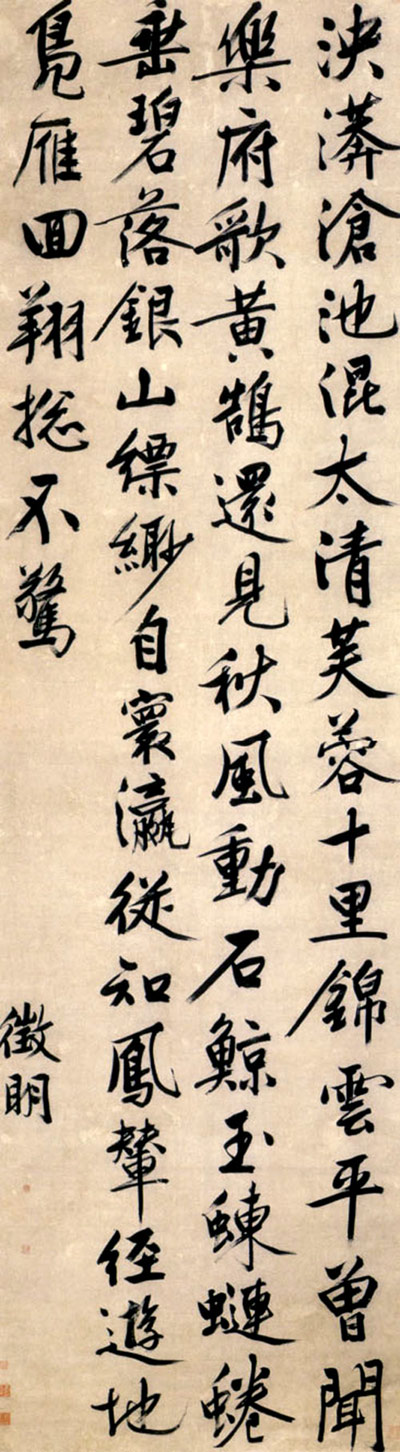 泱漭滄池混太清芙蓉十里錦雲平曾聞
樂府歌黃鵠還見秋風動石鯨玉蝀蜷
垂碧落銀山縹緲自寰瀛從知鳳輦經遊地
鳧雁回翔捴不驚
徵明